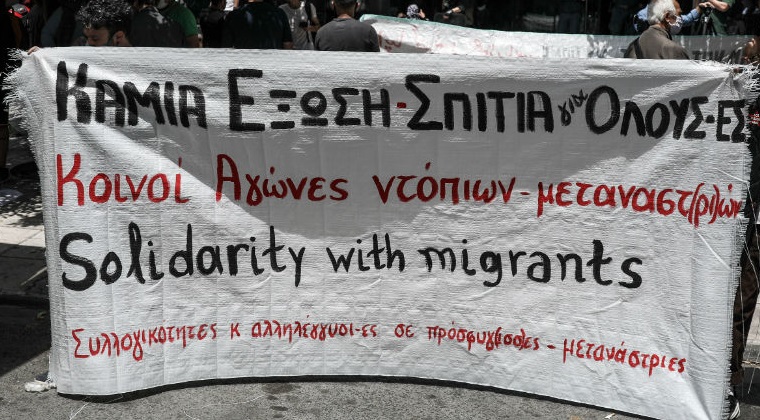 ΚΑΜΙΑ ΕΞΩΣΗ-ΣΠΙΤΙΑ για ΟΛΟΥΣ-ΕΣ
Κοινοί Αγώνες ντόπιων-μεταναστ(ρι)ών
Solidarity with migrants
Συλλογικότητες κ αλληλέγγυοι-ες σε - μετανάστριες